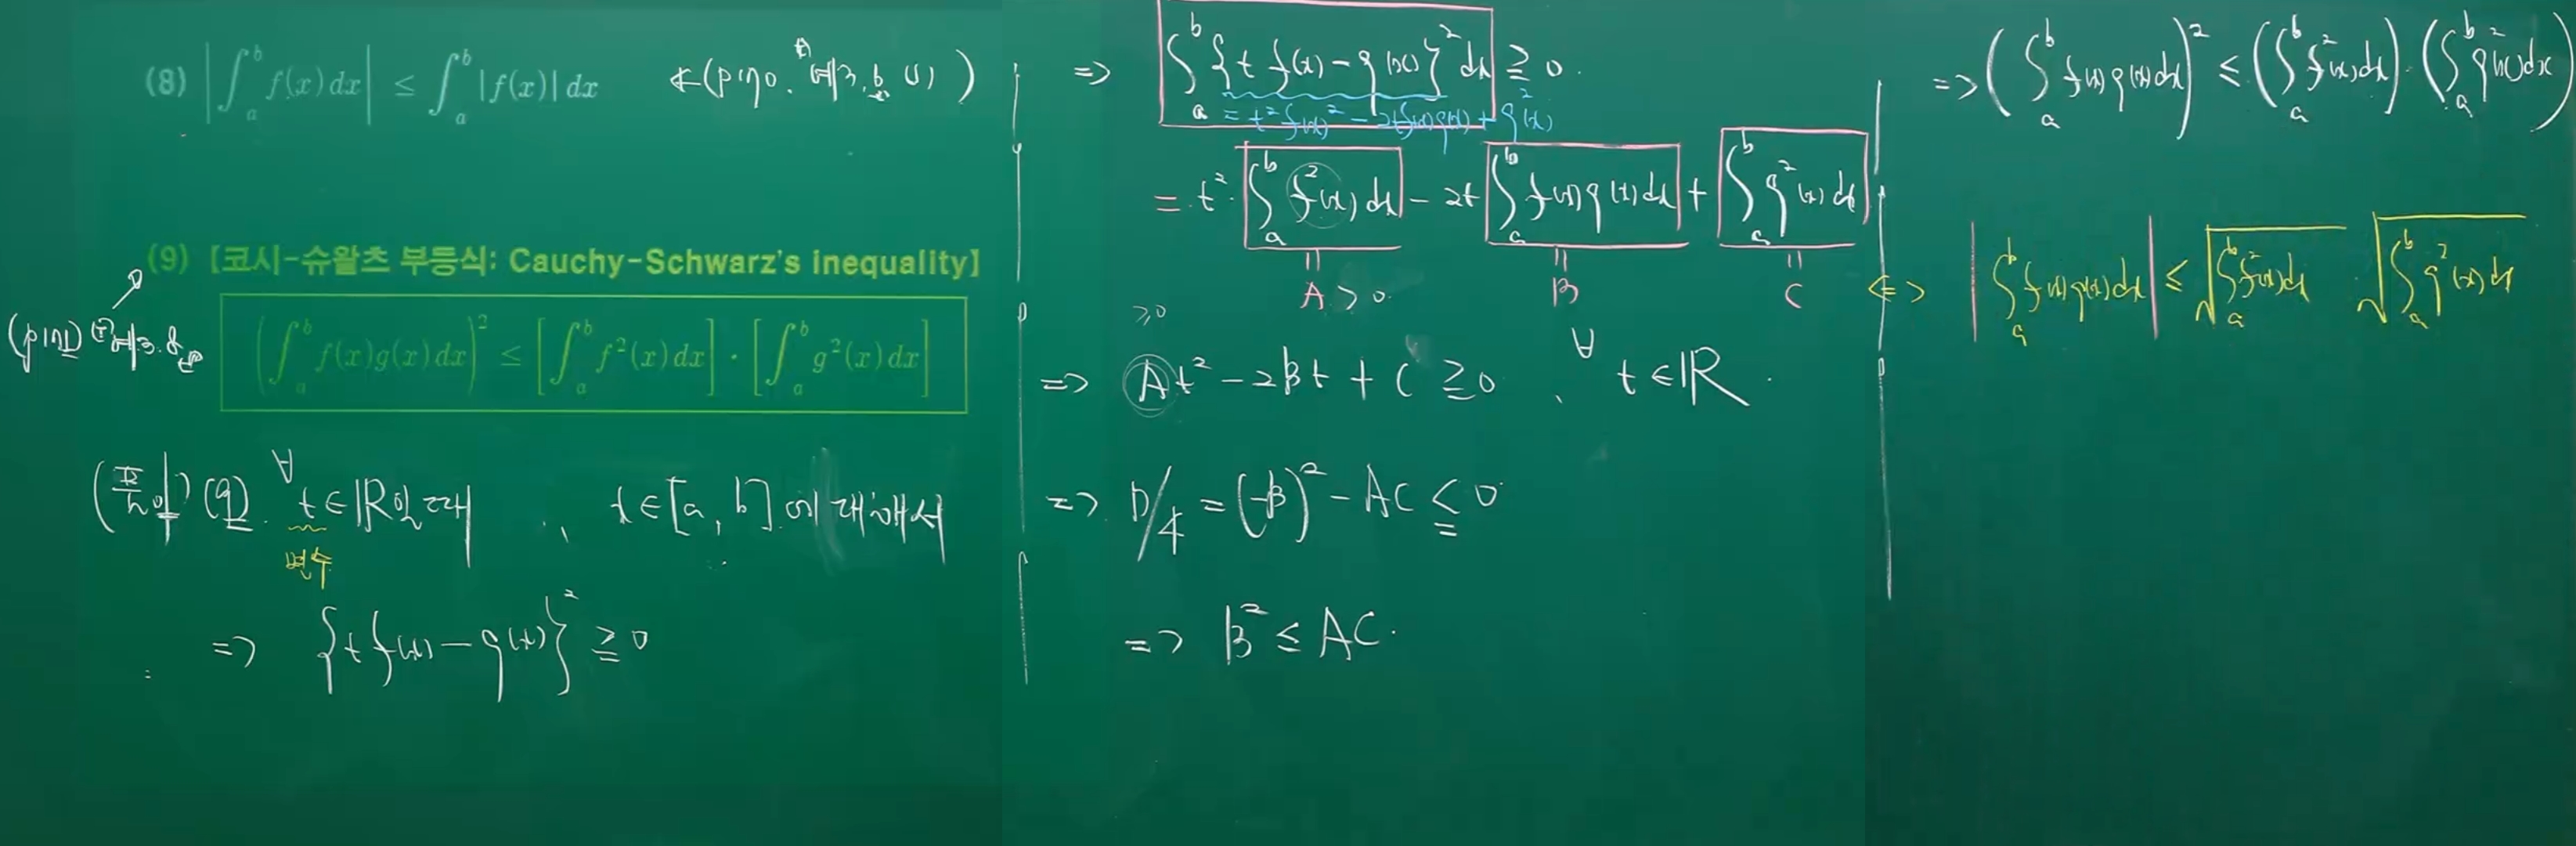 (8) |∫_a^b f(x) dx| ≤ ∫_a^b |f(x)| dx
(9) [코시-슈왈츠 부등식: Cauchy-Schwarz's inequality]
(∫_a^b f(x)g(x) dx)^2 ≤ [∫_a^b f^2(x) dx] · [∫_a^b g^2(x) dx]
(9). ∀t∈ℝ일 때, x∈[a, b]에 대해서
변수
=> {t f(x) - g(x)}^2 ≥ 0
=> ∫_a^b {t f(x) - g(x)}^2 dx ≥ 0.
= t^2 f(x)^2 - 2t f(x)g(x) + g^2(x)
= t^2 · ∫_a^b f^2(x) dx - 2t ∫_a^b f(x)g(x) dx + ∫_a^b g^2(x) dx
A > 0. B C
≥0
=> At^2 - 2Bt + C ≥ 0, ∀t∈ℝ.
=> D/4 = (-B)^2 - AC ≤ 0
=> B^2 ≤ AC.
=> (∫_a^b f(x)g(x) dx)^2 ≤ (∫_a^b f^2(x) dx) · (∫_a^b g^2(x) dx)
<=> |∫_a^b f(x)g(x) dx| ≤ √∫_a^b f^2(x) dx √∫_a^b g^2(x) dx